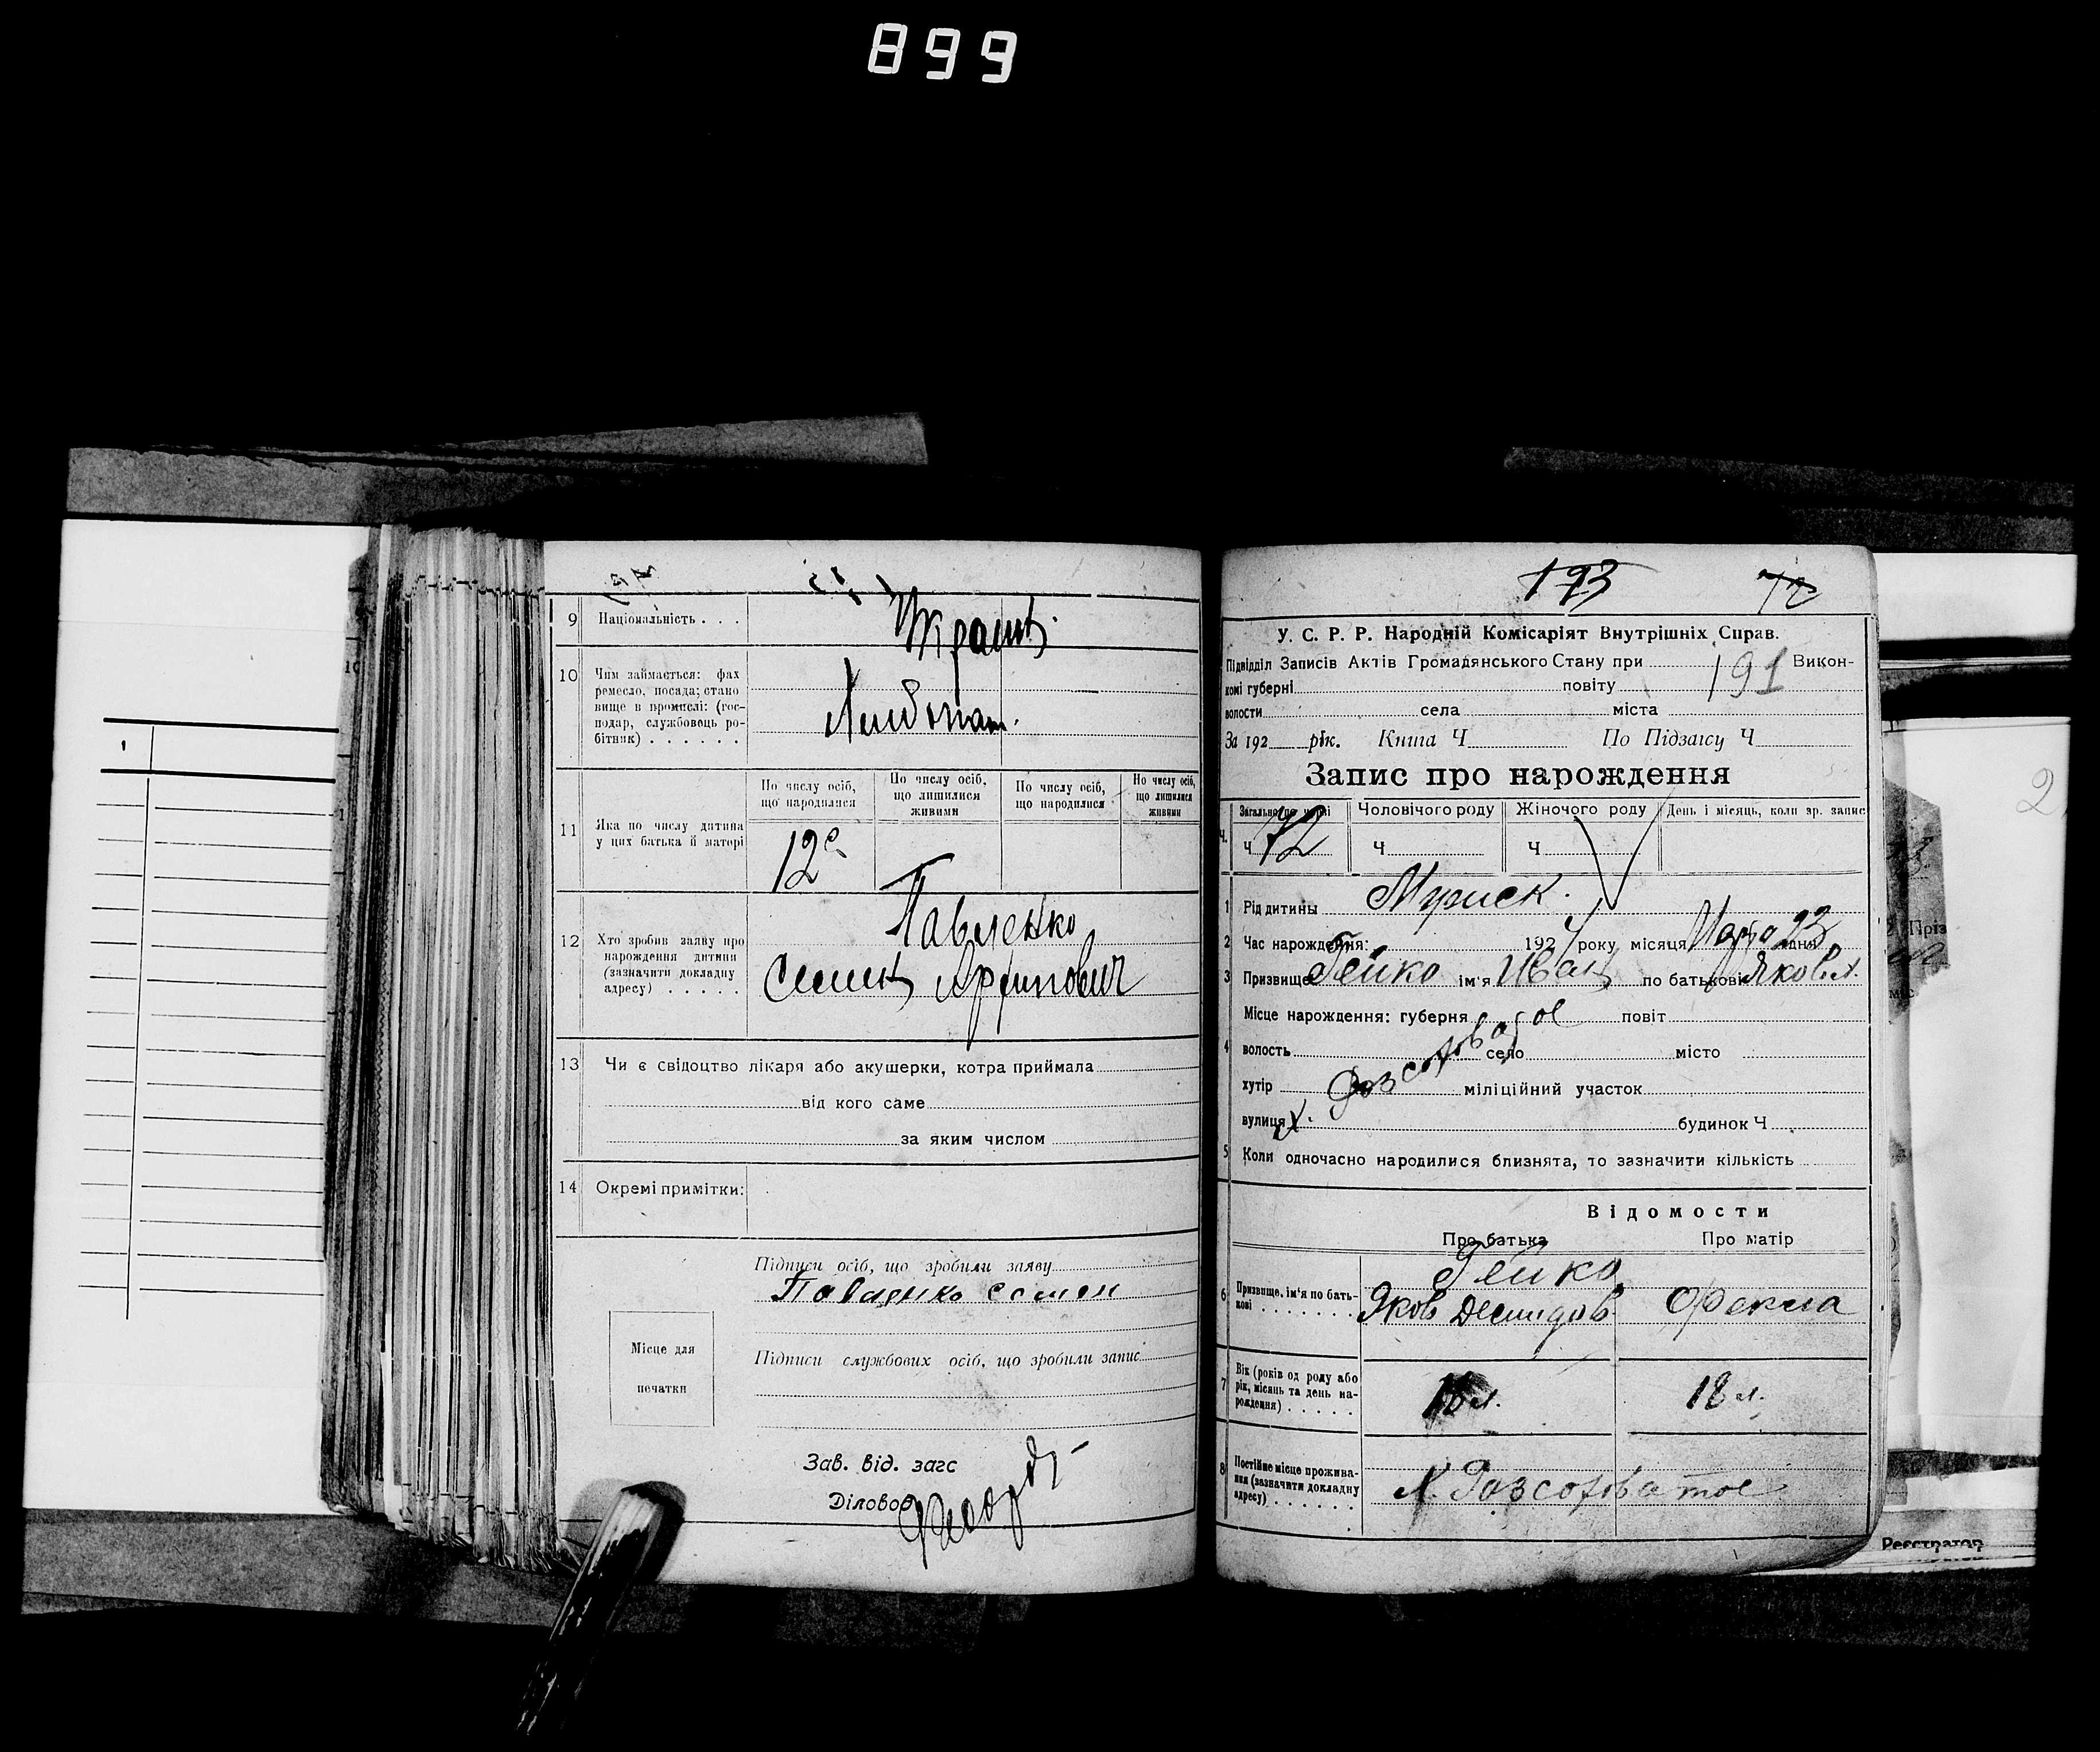 899
9 Національність . . .
Украин.
10 Чим займається: фах
ремесло, посада; стано
вище в промислі: (гос-
подар, службовець ро-
бітник) . . . . . .
Хлібопаш.
По числу осіб, що народилися
По числу осіб, що лишилися живими
По числу осіб, що народилися
По числу осіб, що лишилися живими
11 Яка по числу дитина
у цих батька й матері
12
12 Хто зробив заяву про
нарождення дитини
(зазначити докладну
адресу) . . . . .
Павленко
Семен
13 Чи є свідоцтво лікаря або акушерки, котра приймала
від кого саме
за яким числом
14 Окремі примітки:
Підписи осіб, що зробили заяву
Павленко Семен
Місце для
печатки
Підписи службових осіб, що зробили запис
Зав. від. загс
Діловод
193
72
У. С. Р. Р. Народній Комісаріят Внутрішніх Справ.
Підвідділ Записів Актів Громадянського Стану при 191 Викон-
комі губерні повіту
волости села міста
За 192 рік. Книга Ч По Підзаісу Ч
Запис про нарождення
Чоловічого роду Жіночого роду День і місяць, коли зр. запис
Ч 72 Ч Ч
1 Рід дитины Мужеск.
2 Час нарождення: 1924 року місяця Марта 23 дня
3 Призвище Гейко ім'я Иван по батькові Яковл.
Місце нарождення: губерня повіт
4 волость село місто
хутір міліційний участок
х. Розсоховатое
вулиця будинок Ч
5 Коли одночасно народилися близнята, то зазначити кількість
Відомости
Про батька Про матір
6 Призвище, ім'я по бать-
кові . . . . . . .
Гейко
Яков Демидов. Фекла
7 Вік (років од роду або
рік, місяць та день на-
рождення) . . . . .
18 л. 18 л.
8 Постійне місце прожива-
ння (зазначити докладну
адресу) . . . . . . .
х. Розсоховатое
Реєстратор